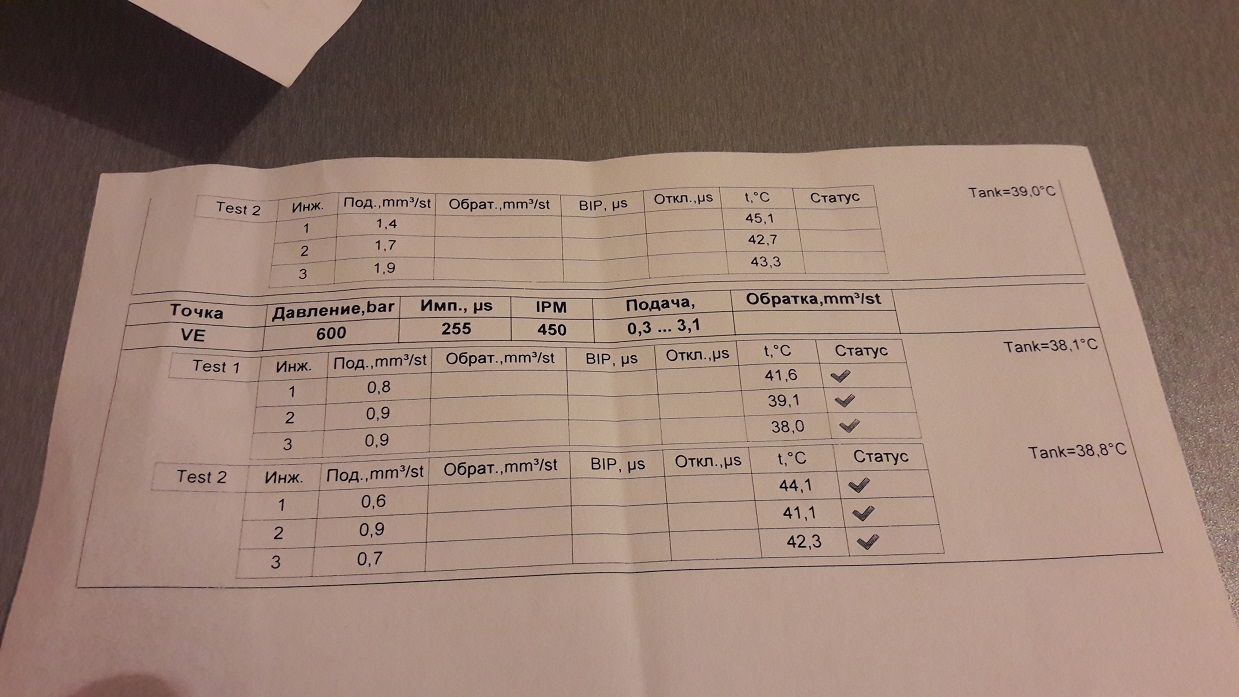 Test 2 Инж. Под.,mm³/st Обрат.,mm³/st BIP, µs Откл.,µs t,°C Статус Tank=39,0°C
1 1,4 45,1
2 1,7 42,7
3 1,9 43,3
Точка Давление,bar Имп., µs IPM Подача, Обратка,mm³/st
VE 600 255 450 0,3 ... 3,1
Test 1 Инж. Под.,mm³/st Обрат.,mm³/st BIP, µs Откл.,µs t,°C Статус Tank=38,1°C
1 0,8 41,6
2 0,9 39,1
3 0,9 38,0
Test 2 Инж. Под.,mm³/st Обрат.,mm³/st BIP, µs Откл.,µs t,°C Статус Tank=38,8°C
1 0,6 44,1
2 0,9 41,1
3 0,7 42,3